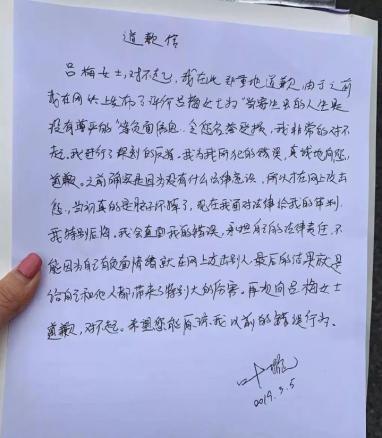 道歉信
吕梅女士,对不起,我在此郑重地道歉,由于之前
我在网上发布了评价吕梅女士为“当寄生虫的人生是
没有尊严的”等负面信息,令您名誉受损,我非常的对不
起。我进行了深刻的反省。我为我所犯的错误,真诚地向您
道歉。之前确实是因为没有什么法律意识,所以才在网上攻击
您,当初真的是脑子坏掉了,现在我面对法律给我的审判,
我特别后悔。我会直面我的错误,承担自己的法律责任,不
能因为自己负面情绪就在网上攻击别人,最后的结果就是
给自己和他人都带来了特别大的伤害。再次向吕梅女士
道歉,对不起。希望您能原谅我以前的错误行为。
2019.9.5